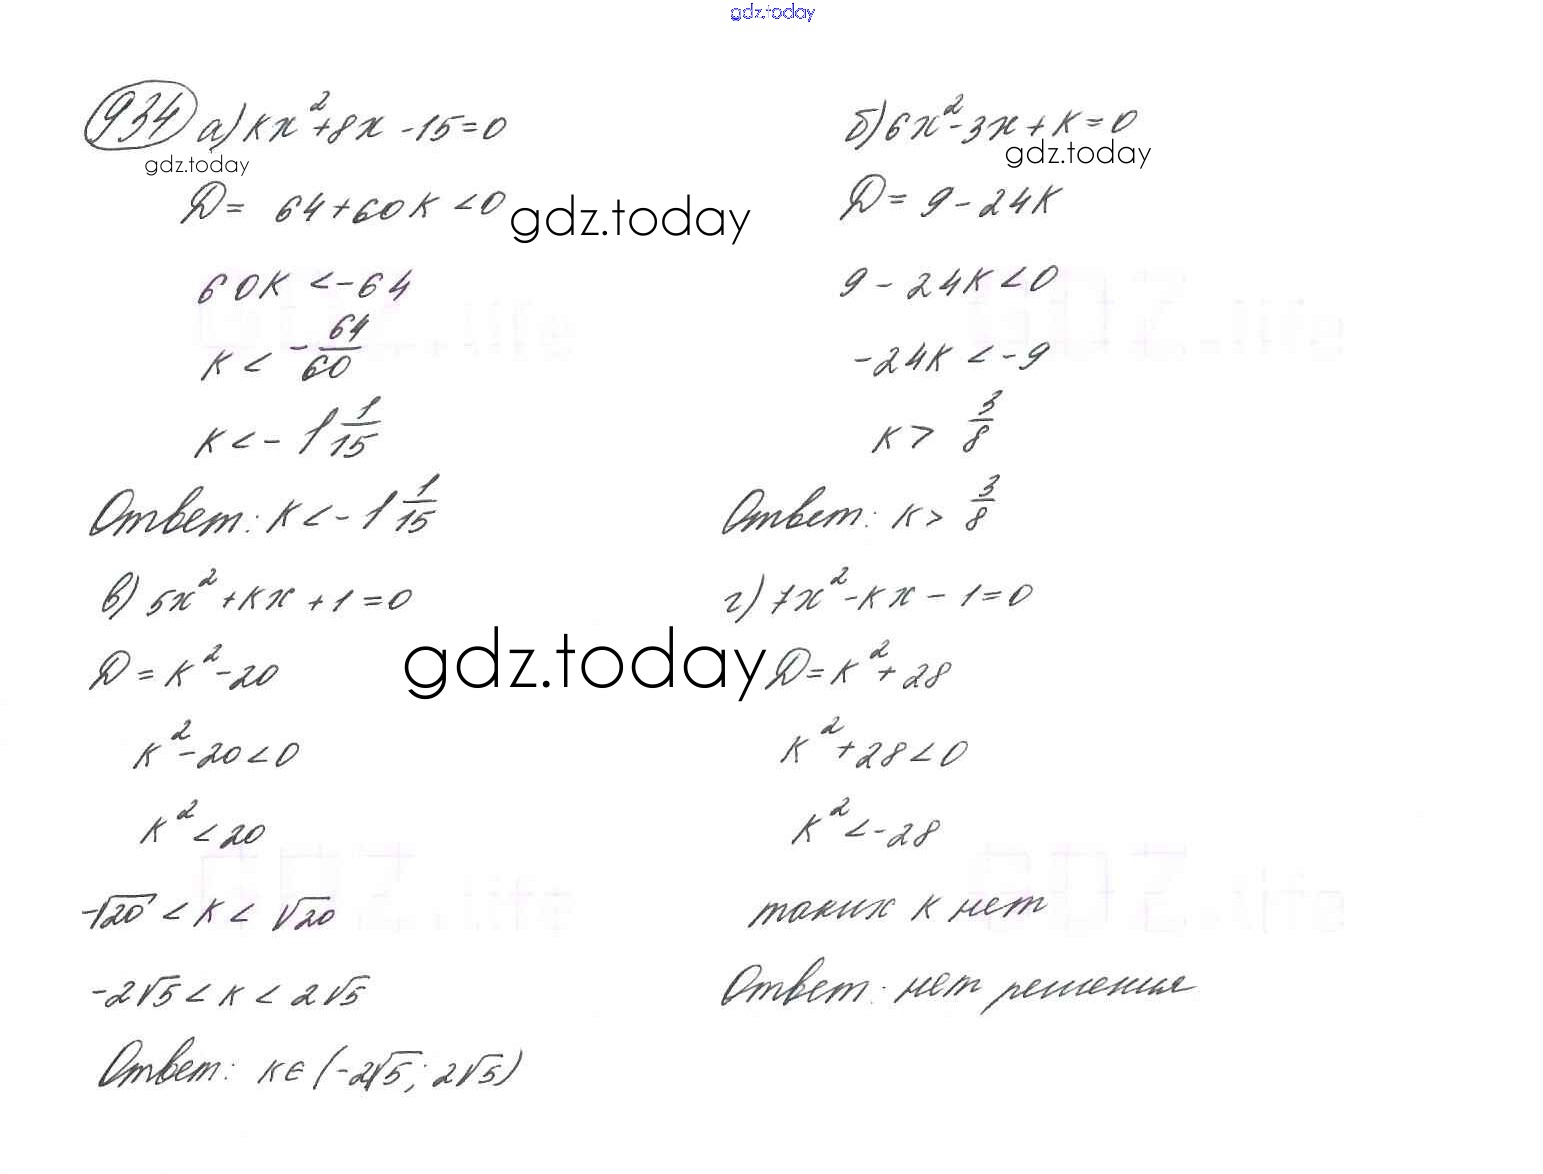 gdz.today
934 а) kx² + 8x - 15 = 0
gdz.today
D = 64 + 60k < 0
gdz.today
60k < -64
k < - 64/60
k < - 1 1/15
Ответ: k < - 1 1/15
б) 6x² - 3x + k = 0
gdz.today
D = 9 - 24k
9 - 24k < 0
-24k < -9
k > 3/8
Ответ: k > 3/8
в) 5x² + kx + 1 = 0
D = k² - 20
gdz.today
k² - 20 < 0
k² < 20
-√20 < k < √20
-2√5 < k < 2√5
Ответ: k ∈ (-2√5; 2√5)
г) 7x² - kx - 1 = 0
D = k² + 28
k² + 28 < 0
k² < -28
таких k нет
Ответ: нет решения
GDZ.life
GDZ.life
GDZ.life
GDZ.life